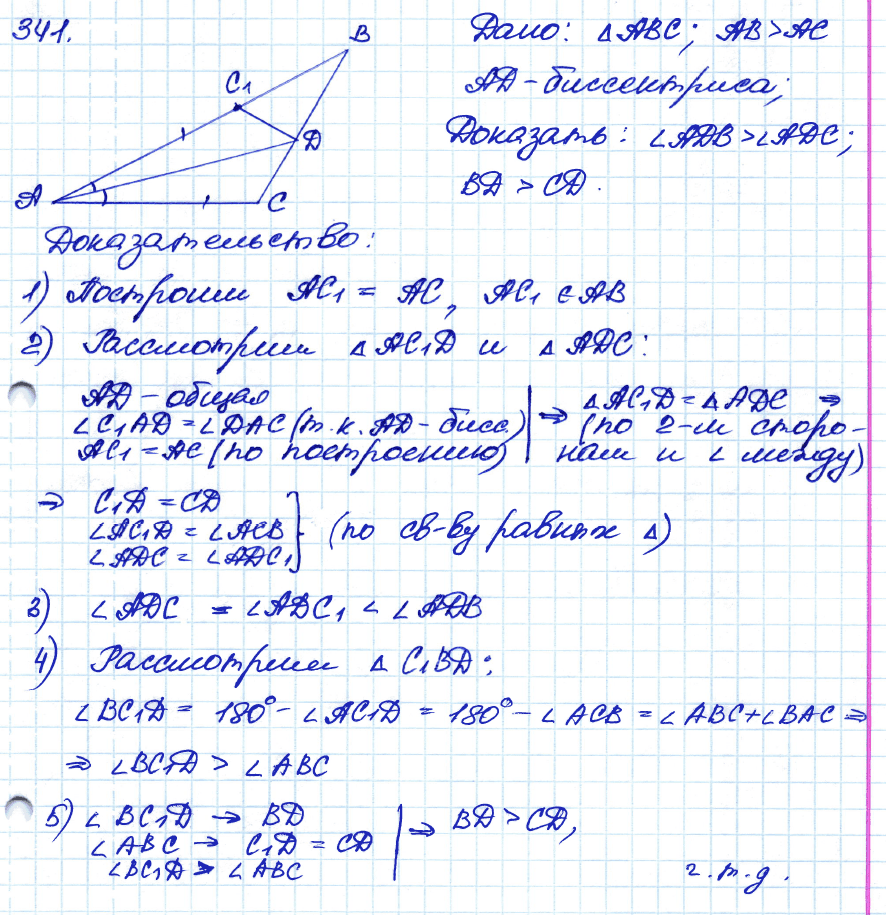 341.
B
C₁
D
A
C
Дано: △ABC; AB>AC
AD-биссектриса;
Доказать: ∠ADB>∠ADC;
BD > CD.
Доказательство:
1) Построим AC₁ = AC, AC₁ ∈ AB
2) Рассмотрим △AC₁D и △ADC:
AD-общая
∠C₁AD=∠DAC (т.к. AD-бисс.)
AC₁=AC (по построению)
⇒ △AC₁D=△ADC ⇒
(по 2-м сторо-
нам и ∠ между)
⇒ C₁D=CD
∠AC₁D = ∠ACB
∠ADC = ∠ADC₁
(по св-ву равных △)
3) ∠ADC = ∠ADC₁ < ∠ADB
4) Рассмотрим △C₁BD:
∠BC₁D = 180°-∠AC₁D = 180°-∠ACB = ∠ABC+∠BAC ⇒
⇒ ∠BC₁D > ∠ABC
5) ∠BC₁D → BD
∠ABC → C₁D = CD
∠BC₁D > ∠ABC
⇒ BD>CD,
ч.т.д.